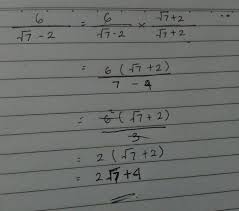 6/(√7 - 2) = 6/(√7 - 2) × (√7 + 2)/(√7 + 2)
= 6 (√7 + 2)/(7 - 4)
= 6² (√7 + 2)/3
= 2 (√7 + 2)
= 2√7 + 4